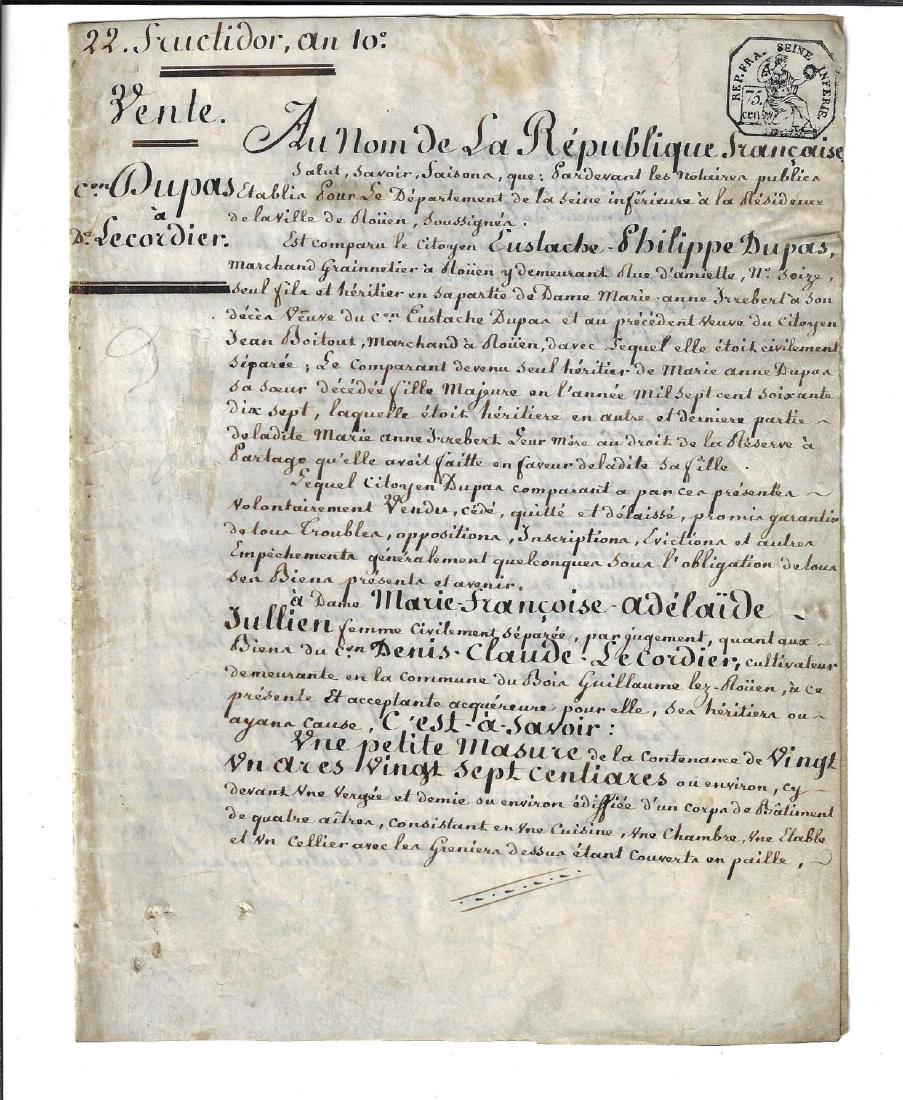 22. Fructidor, an 10e.
REP. FRA. SEINE INFERIE.
75.
cen
Vente.
Au Nom de La République française,
Salut, savoir, faisons, que: Pardevant les Notaires publics
cen. Dupas
Etablis Pour Le Département de la seine inférieure à la Résidence
à
de la Ville de Roüen, soussignés.
De. Lecordier.
Est comparu le citoyen Eustache-Philippe Dupas,
Marchand Grainnetier à Roüen y demeurant Rue d'amiette, No. seize,
seul fils et héritier en sa partie de Dame Marie-anne Irrebert à son
decès Veuve du cen. Eustache Dupas et au précédent veuve du Citoyen
Jean Boitout, Marchand à Roüen, davec lequel elle étoit civilement
séparée; Le Comparant devenu seul héritier de Marie anne Dupas
sa sœur décédée fille Majeure en l'année Mil sept cent soixante
dix sept, laquelle étoit héritiere en autre et derniere partie ~
de ladite Marie anne Irrebert Leur Mère au droit de la Réserve à
Partage qu'elle avoit faitte en faveur de ladite sa fille.
Lequel Citoyen Dupas comparant a par ces présentes ~
volontairement Vendu, cédé, quitté et délaissé, promis garantir
de tous Troubles, oppositions, Inscriptions, Evictions et autres
Empêchements généralement quelconques sous l'obligation de tous
ses Biens présents et avenir.
à Dame Marie-Françoise-adélaïde ~
Jullien femme Civilement séparée, par jugement, quant aux
Biens du cen. Denis-Claude-Lecordier, cultivateur
demeurante en la Commune du Bois Guillaume lez-Roüen, à ce
présente Et acceptante acquéreure pour elle, ses héritiers ou ~
ayans cause, C'est-à-savoir:
Une petite Masure de la Contenance de Vingt
Un ares Vingt sept centiares ou environ, cy
devant Une Vergée et demie ou environ édiffiée d'un corps de Bâtiment
de quatre aîtres, Consistant en Une Cuisine, Une Chambre, Une Etable
et Un Cellier avec les Greniers dessus étant Couverts en paille, ~